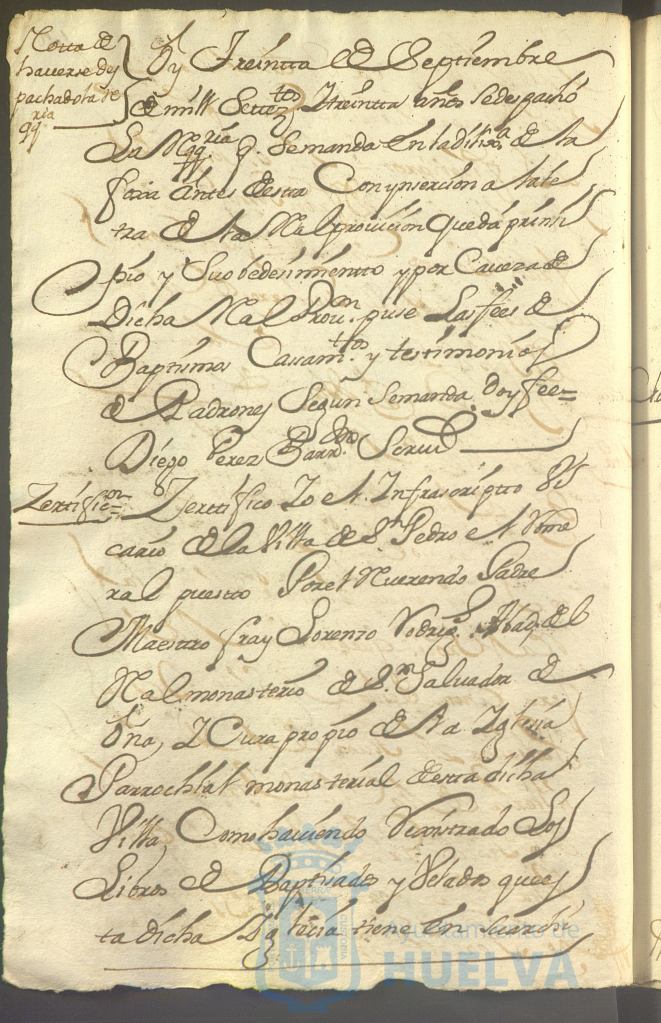 Notta de
haverse des
pachado la re
ria
qq.
En Treintta de Septiembre
de mill Settez.tos Ytreintta años se despachó
La Rqq.ria q. Semanda En la dilix.a de la
foxa antes desta Con ynserción a la le
tra de la Real provición que da prinsi
pio y Su obedesimientto y por Cavera de
Dicha Real Prov.on puse Las fées de
Baptismos Cassam.tos y testimonios
de Padrones Según Semanda Doy fee=
Diego Perez Barr.do Scriv.
Zertific.on= Zerttifico Yo el Infrascriptto Vi
cario de la Villa de S.n Pedro el Nome
ral puestto Por el Reverendo Padre
Maestro fray Lorenzo Rodrig.z Abad del
Real monasterio de S.n Salvador de
Oña, Y Cura propio de la Yglesia
Parrochial monasterial desta dicha
Villa Como haviendo Rexistrado Los
Libros de Baptizados y Velados que es
ta dicha Yglecia tiene En su archi
Ayuntamiento de
HUELVA